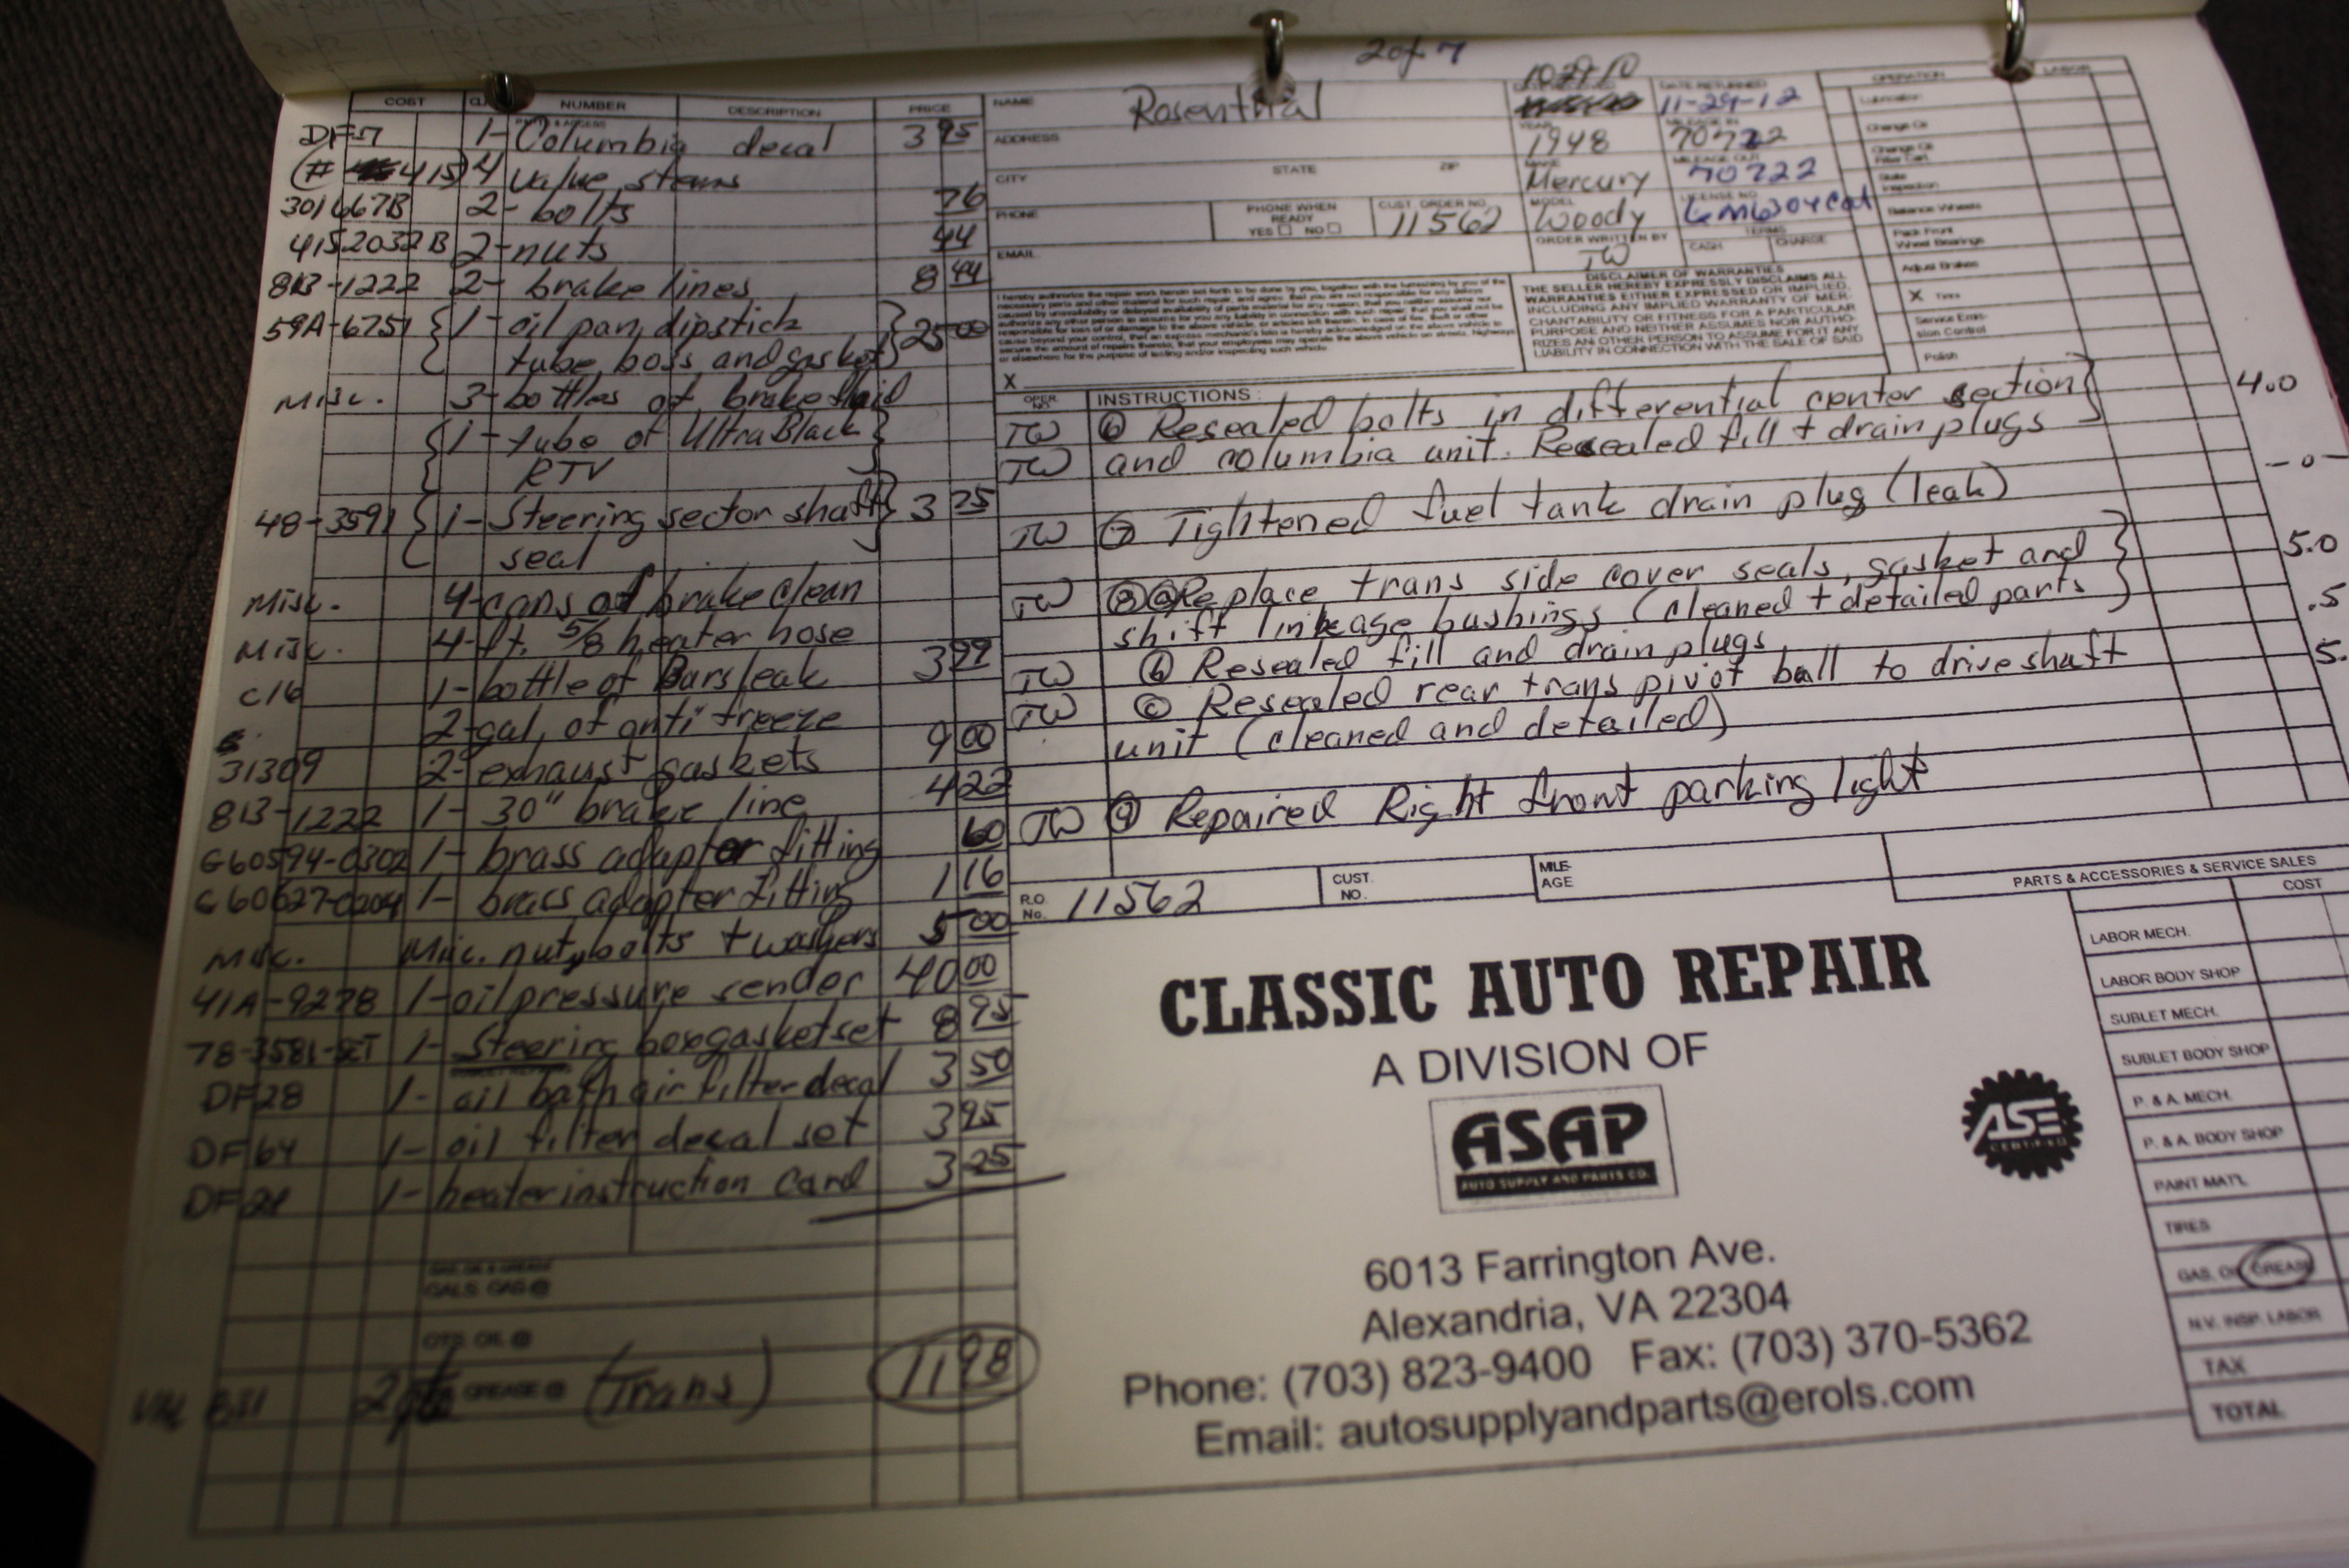 2 of 7
COST
NUMBER
DESCRIPTION
PRICE
DF-7 1- Columbia decal 3 95
(# 415) 4 valve stems
301667B 2- bolts 76
4152032B 2- nuts 44
813-1222 2- brake lines 8 44
59A-6751 { 1- oil pan, dipstick } 25 00
tube, boss and gasket
Misc. 3- bottles of brake fluid
{ 1- tube of Ultra Black }
RTV
48-3591 { 1- Steering sector shaft } 3 25
seal
Misc. 4-cans of brake clean
Misc. 4-ft. 5/8 heater hose
C16 1- bottle of Bars leak 3 99
2-gal. of anti freeze
31309 2- exhaust gaskets 9 00
813-1222 1- 30" brake line 4 22
G60594-0302 1- brass adapter fitting 60
G60627-0204 1- brass adapter fitting 1 16
Misc. Misc. nuts, bolts + washers 5 00
41A-9278 1- oil pressure sender 40 00
78-3581-SET 1- Steering box gasket set 8 95
DF28 1- oil bath air filter decal 3 50
DF64 1- oil filter decal set 3 95
1- heater instruction card 3 25
GALS. GAS @
QTS. OIL @
GREASE @ (Trans) 11 98
NAME Rosenthal
ADDRESS
CITY STATE ZIP
PHONE
PHONE WHEN READY YES NO
CUST. ORDER NO. 11562
EMAIL
10-29-10
DATE RETURNED 11-29-12
YEAR 1948
MILEAGE IN 70722
MAKE Mercury
MILEAGE OUT 70722
MODEL Woody
LICENSE NO.
ORDER WRITTEN BY TW
TERMS
CASH CHARGE
OPERATION LABOR
Lubrication
Change Oil
Change Oil Filter Cart.
State Inspection
Balance Wheels
Pack Front Wheel Bearings
Adjust Brakes
X Tires
Service Emission Control
Polish
DISCLAIMER OF WARRANTIES
THE SELLER HEREBY EXPRESSLY DISCLAIMS ALL
WARRANTIES EITHER EXPRESSED OR IMPLIED,
INCLUDING ANY IMPLIED WARRANTY OF MER-
CHANTABILITY OR FITNESS FOR A PARTICULAR
PURPOSE AND NEITHER ASSUMES NOR AUTHO-
RIZES ANOTHER PERSON TO ASSUME FOR IT ANY
LIABILITY IN CONNECTION WITH THE SALE OF SAID
X
OPER. NO.
INSTRUCTIONS:
TW ⑥ Resealed bolts in differential center section } 4.0
TW and columbia unit. Resealed fill + drain plugs
TW ⑦ Tightened fuel tank drain plug (leak) -0-
TW ⑧ⓐ Replace trans side cover seals, gasket and } 5.0
shift linkage bushings (cleaned + detailed parts
TW ⓑ Resealed fill and drain plugs .5
TW ⓒ Resealed rear trans pivot ball to driveshaft 5.
unit (cleaned and detailed)
TW ⑨ Repaired Right front parking light
R.O. No. 11562
CUST. NO.
MILE-AGE
PARTS & ACCESSORIES & SERVICE SALES
COST
LABOR MECH.
LABOR BODY SHOP
SUBLET MECH.
SUBLET BODY SHOP
P. & A. MECH.
P. & A. BODY SHOP
PAINT MAT'L
TIRES
GAS, OIL GREASE
N.V. INSP. LABOR
TAX
TOTAL
CLASSIC AUTO REPAIR
A DIVISION OF
ASAP
AUTO SUPPLY AND PARTS CO.
ASE
CERTIFIED
6013 Farrington Ave.
Alexandria, VA 22304
Phone: (703) 823-9400 Fax: (703) 370-5362
Email: autosupplyandparts@erols.com